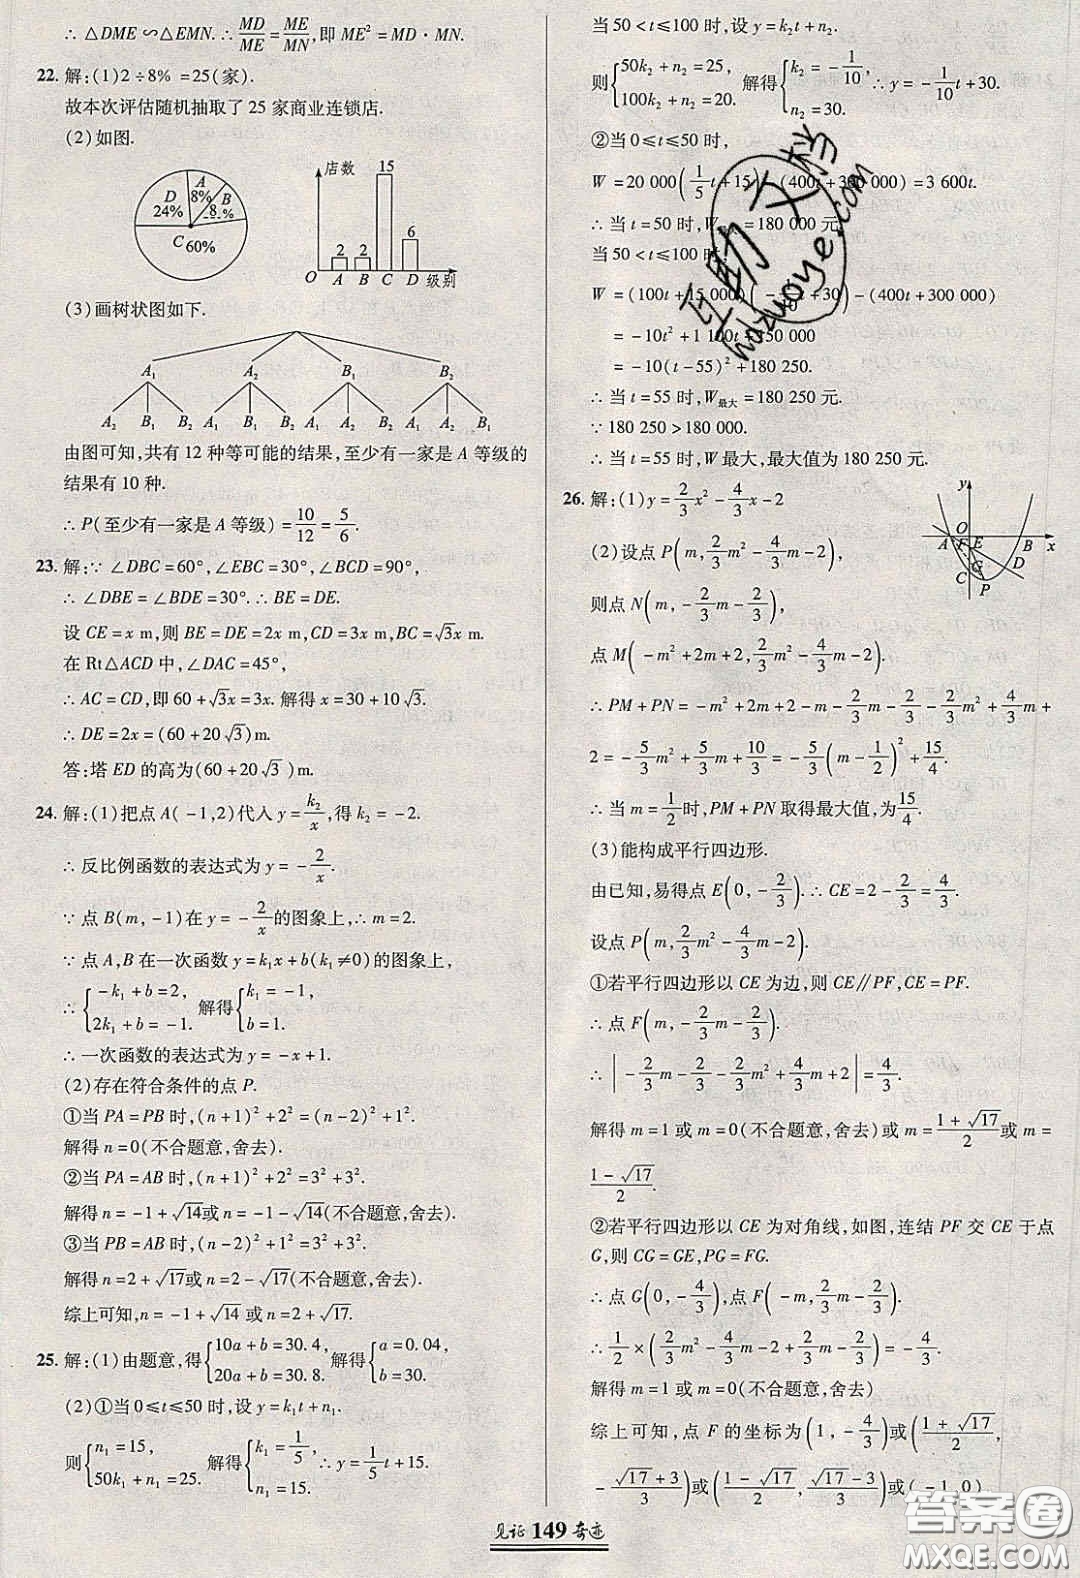 ∴ △DME∽△EMN. ∴ MD/ME = ME/MN, 即 ME² = MD·MN.
22. 解:(1)2÷8% = 25(家).
故本次评估随机抽取了 25 家商业连锁店.
(2)如图.
A 8%
B
D 24%
C 60%
店数
15
6
2 2
O A B C D 级别
(3)画树状图如下.
A₁ A₂ B₁ B₂
A₂ B₁ B₂ A₁ B₁ B₂ A₁ A₂ B₂ A₁ A₂ B₁
由图可知,共有 12 种等可能的结果,至少有一家是 A 等级的
结果有 10 种.
∴ P(至少有一家是 A 等级) = 10/12 = 5/6.
23. 解:∵ ∠DBC=60°,∠EBC=30°,∠BCD=90°,
∴ ∠DBE=∠BDE=30°. ∴ BE=DE.
设 CE=x m,则 BE=DE=2x m,CD=3x m,BC=√3x m.
在 Rt△ACD 中,∠DAC=45°,
∴ AC=CD,即 60+√3x=3x. 解得 x=30+10√3.
∴ DE=2x=(60+20√3)m.
答:塔 ED 的高为(60+20√3)m.
24. 解:(1)把点 A(-1,2)代入 y=k₂/x,得 k₂=-2.
∴ 反比例函数的表达式为 y=-2/x.
∵ 点 B(m,-1)在 y=-2/x的图象上,∴ m=2.
∵ 点 A,B 在一次函数 y=k₁x+b(k₁≠0)的图象上,
∴ {-k₁+b=2, 2k₁+b=-1. 解得{k₁=-1, b=1.
∴ 一次函数的表达式为 y=-x+1.
(2)存在符合条件的点 P.
①当 PA=PB 时,(n+1)²+2²=(n-2)²+1².
解得 n=0(不合题意,舍去).
②当 PA=AB 时,(n+1)²+2²=3²+3².
解得 n=-1+√14或 n=-1-√14(不合题意,舍去).
③当 PB=AB 时,(n-2)²+1²=3²+3².
解得 n=2+√17或 n=2-√17(不合题意,舍去).
综上可知,n=-1+√14 或 n=2+√17.
25. 解:(1)由题意,得{10a+b=30.4, 20a+b=30.8. 解得{a=0.04, b=30.
(2)①当 0≤t≤50 时,设 y=k₁t+n₁.
则{n₁=15, 50k₁+n₁=25. 解得{k₁=1/5, n₁=15. ∴ y=1/5t+15.
当 50<t≤100 时,设 y=k₂t+n₂.
则{50k₂+n₂=25, 100k₂+n₂=20. 解得{k₂=-1/10, n₂=30. ∴ y=-1/10t+30.
②当 0≤t≤50 时,
W=20 000(1/5t+15)-(400t+300 000)=3 600t.
∴ 当 t=50 时,W最大=180 000 元.
当 50<t≤100 时,
W=(100t+15 000)(-1/10t+30)-(400t+300 000)
=-10t²+1 100t+150 000
=-10(t-55)²+180 250.
∴ 当 t=55 时,W最大=180 250 元.
∵ 180 250>180 000.
∴ 当 t=55 时,W 最大,最大值为 180 250 元.
26. 解:(1)y=2/3x²-4/3x-2
y
A O F E B x
G D
C P
(2)设点 P(m,2/3m²-4/3m-2),
则点 N(m,-2/3m-2/3),
点 M(-m²+2m+2,2/3m²-4/3m-2).
∴ PM+PN=-m²+2m+2-m-2/3m-2/3-2/3m²+4/3m+
2=-5/3m²+5/3m+10/3=-5/3(m-1/2)²+15/4.
∴ 当 m=1/2时,PM+PN 取得最大值,为15/4.
(3)能构成平行四边形.
由已知,易得点 E(0,-2/3). ∴ CE=2-2/3=4/3.
设点 P(m,2/3m²-4/3m-2).
①若平行四边形以 CE 为边,则 CE∥PF,CE=PF.
∴ 点 F(m,-2/3m-2/3).
∴ |-2/3m-2/3-2/3m²+4/3m+2|=4/3.
解得 m=1 或 m=0(不合题意,舍去)或 m=(1+√17)/2或 m=
(1-√17)/2.
②若平行四边形以 CE 为对角线,如图,连结 PF 交 CE 于点
G,则 CG=GE,PG=FG.
∴ 点 G(0,-4/3),点 F(-m,2/3m-2/3).
∴ 1/2×(2/3m²-4/3m-2+2/3m-2/3)=-4/3.
解得 m=1 或 m=0(不合题意,舍去)
综上可知,点 F 的坐标为(1,-4/3)或((1+√17)/2,
-(√17+3)/3)或((1-√17)/2,(√17-3)/3)或(-1,0)
见证 149 奇迹
互助文档
hdzuoye.com
答案圈
MXQE.COM